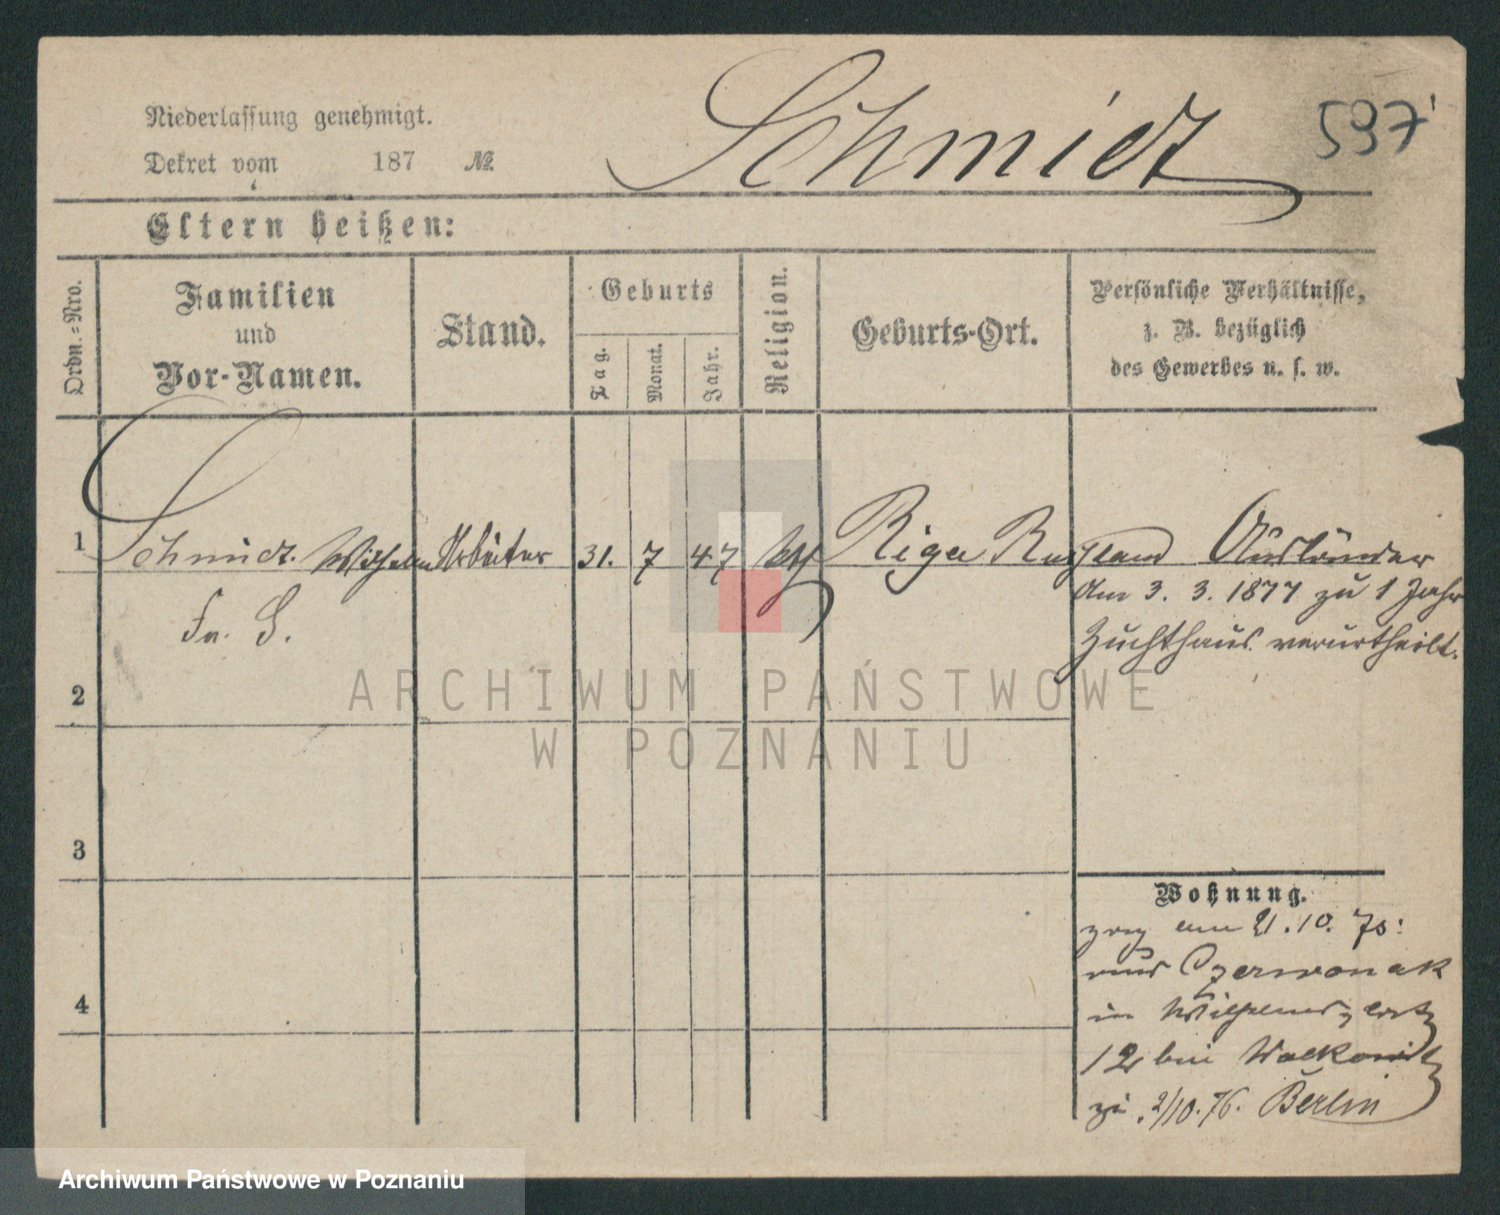 Niederlassung genehmigt.
Dekret vom 187 №
Schmidt
597
Eltern heißen:
Ordn.-Nro.
Familien
und
Vor-Namen.
Stand.
Geburts
Tag.
Monat.
Jahr.
Religion.
Geburts-Ort.
Persönliche Verhältnisse,
z. B. bezüglich
des Gewerbes u. s. w.
1 Schmidt. Wilhelm Arbeiter 31. 7 47 Riga Russland Ausländer
Am 3. 3. 1877 zu 1 Jahr
Zuchthaus verurtheilt.
2
3
4
Wohnung.
zog am 21.10.75:
aus Czerwonak
in Wilhelmsplatz
12 bei
2/10.76. Berlin
ARCHIWUM PAŃSTWOWE
W POZNANIU
Archiwum Państwowe w Poznaniu